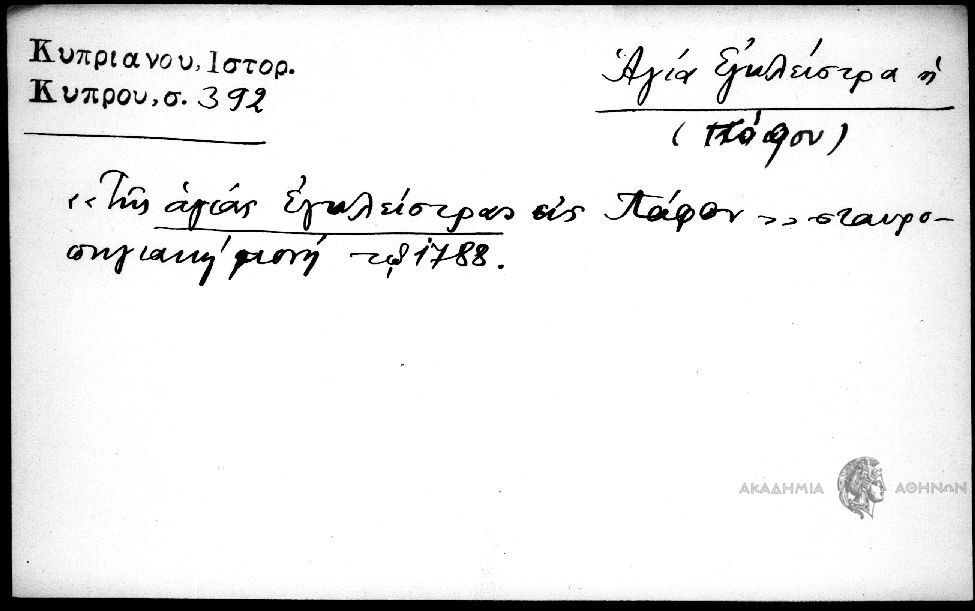 Κυπριανου, Ιστορ.
Κυπρου, σ. 392
Ἁγία Ἐγκλείστρα ἡ
(Πάφου)
«Τῆς ἁγιάς Ἐγκλείστρας εἰς Πάφον» σταυρο-
πηγιακή μονή τῷ 1788.
ΑΚΑΔΗΜΙΑ ΑΘΗΝΩΝ